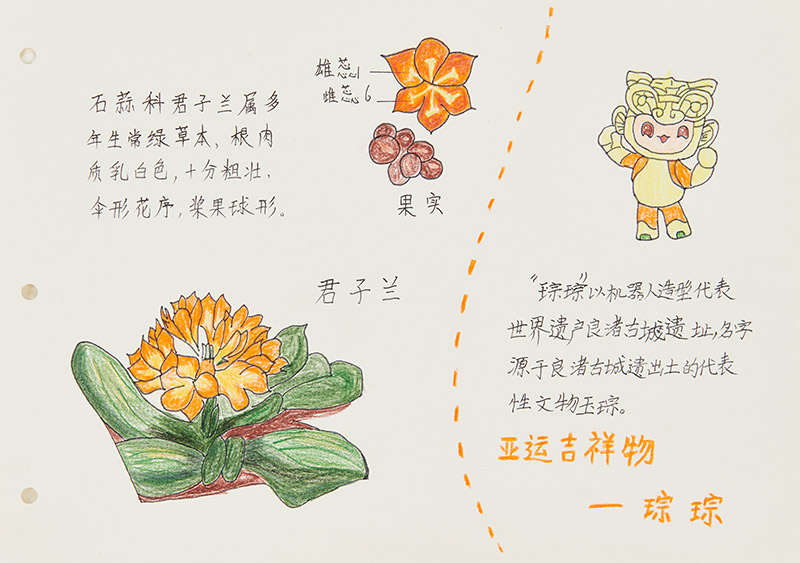 石蒜科君子兰属多
年生常绿草本，根肉
质乳白色，十分粗壮.
伞形花序，浆果球形。
雄蕊1
雌蕊6
果实
君子兰
“琮琮”以机器人造型代表
世界遗产良渚古城遗址,名字
源于良渚古城遗出土的代表
性文物玉琮。
亚运吉祥物
一琮琮